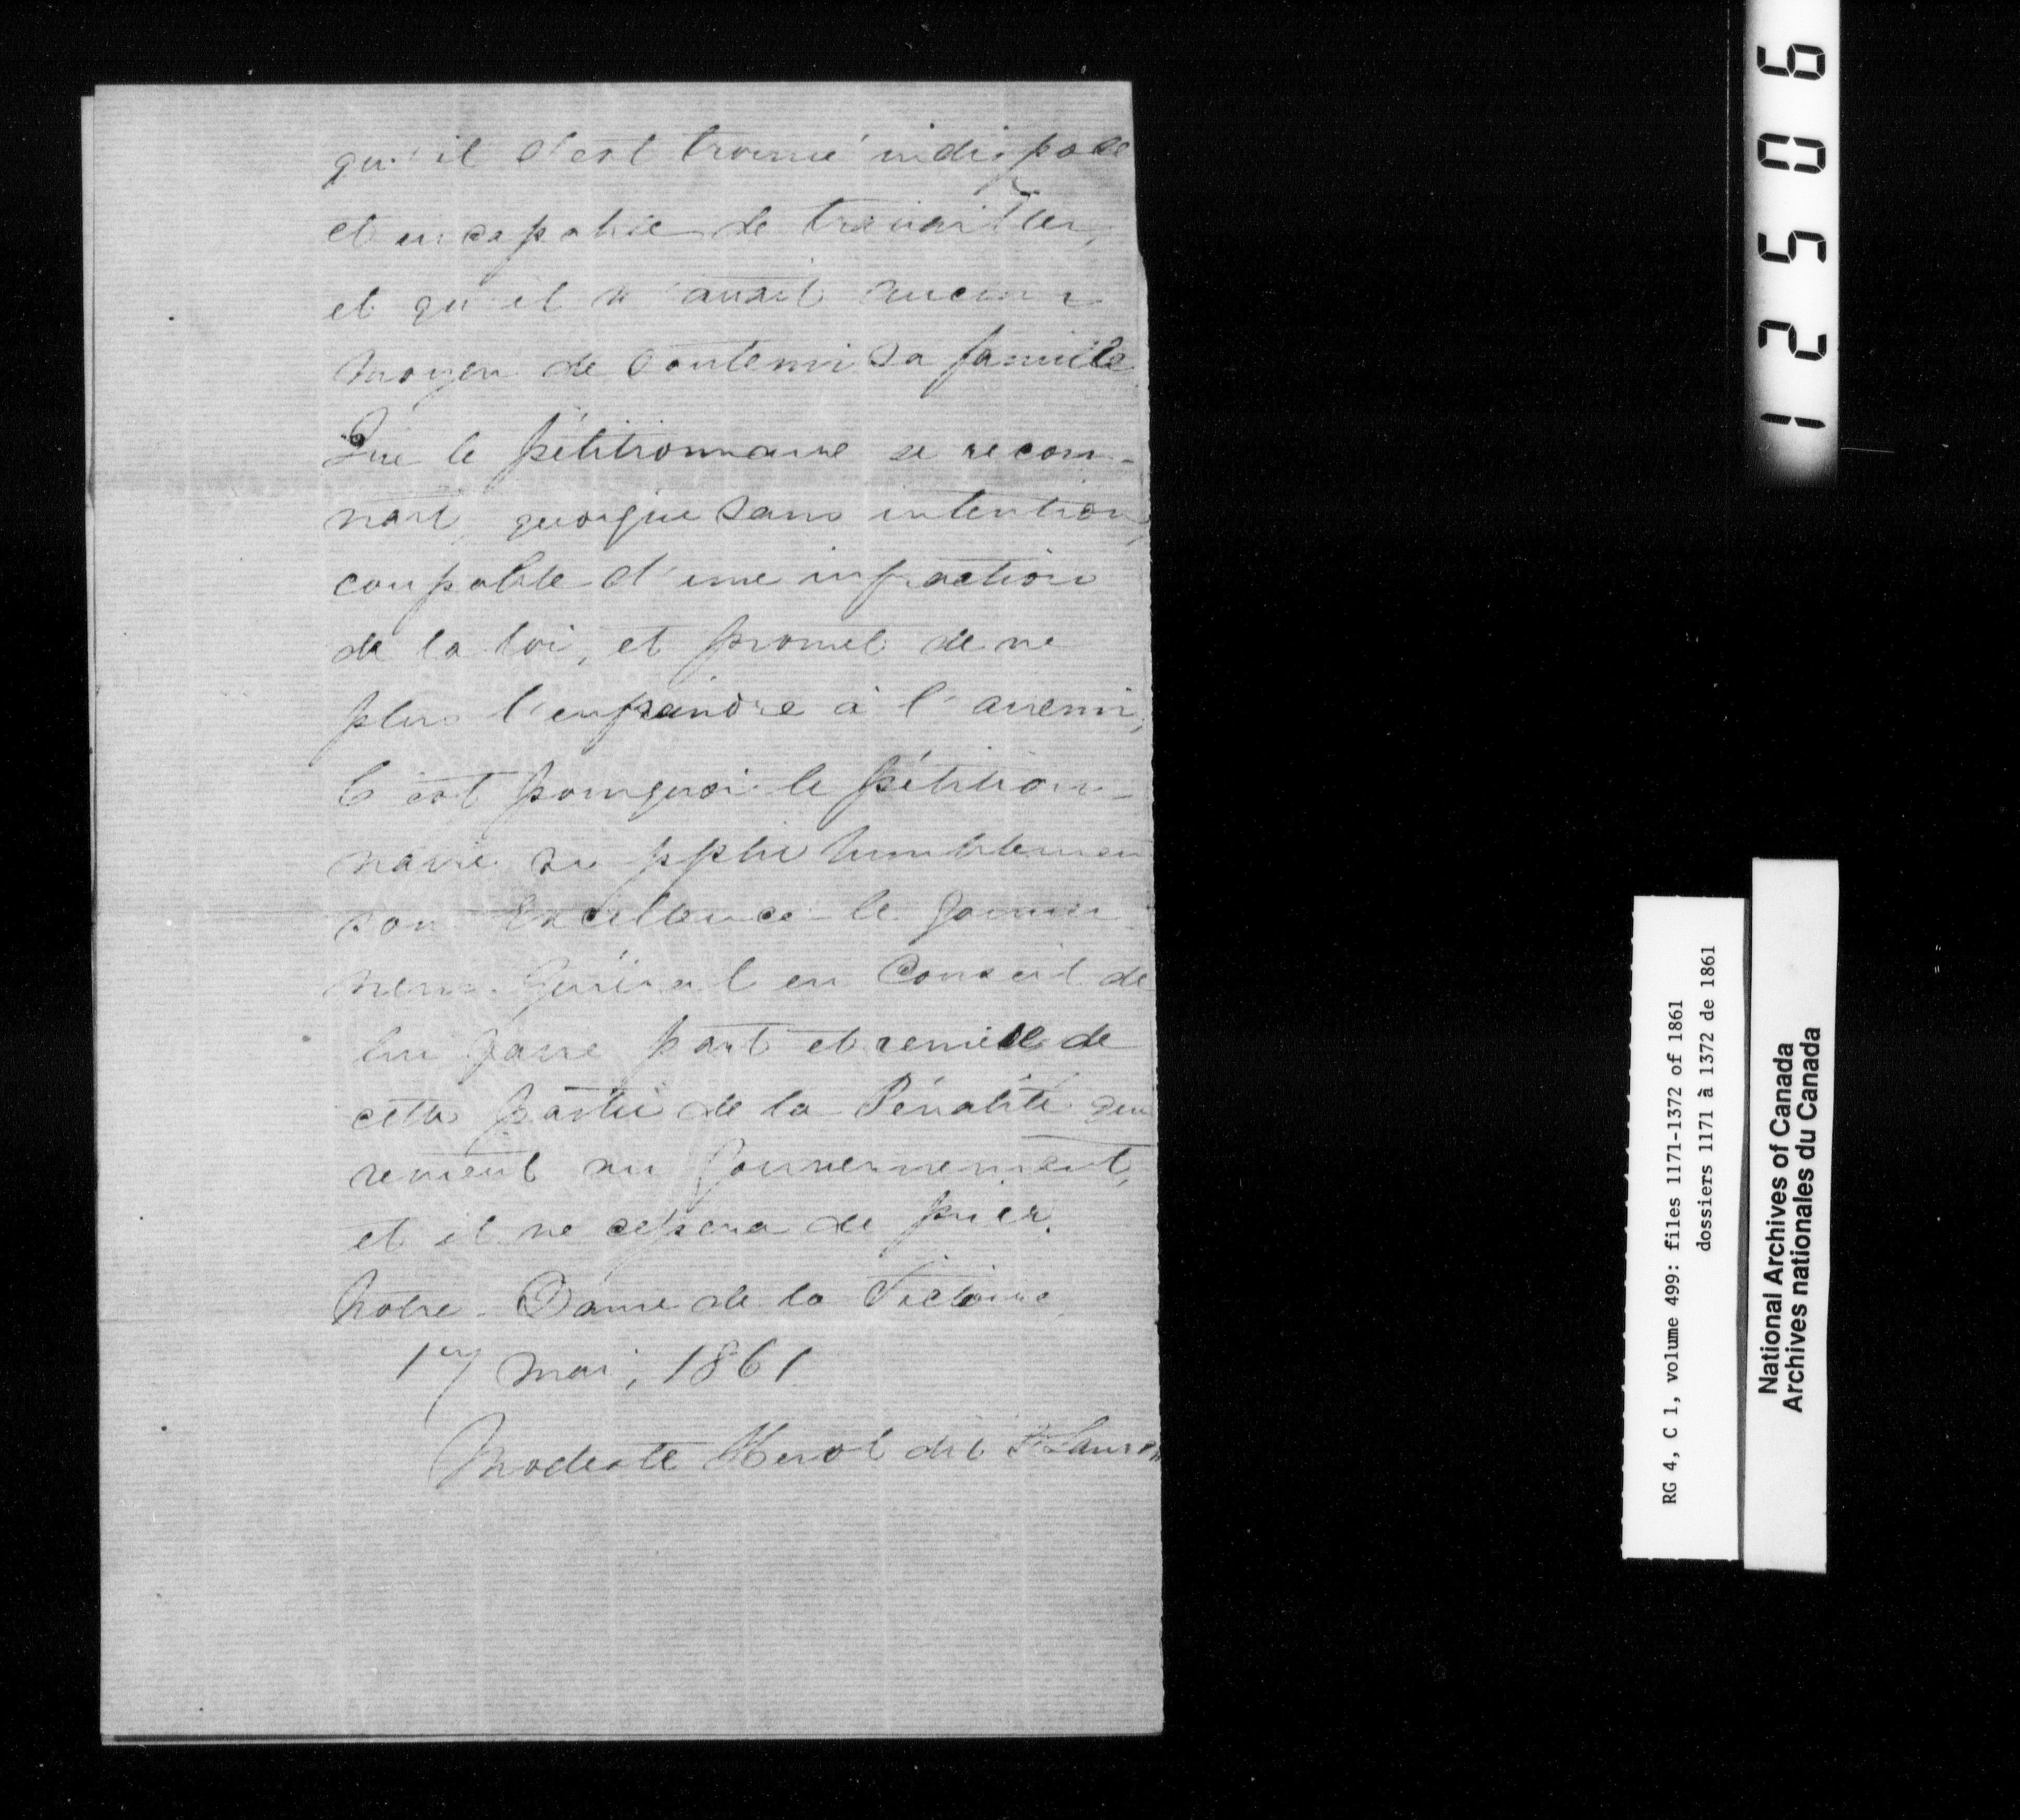 qu'il s'est trouvé indisposé
et incapable de travailler,
et qu'il n'avait aucun
moyen de soutenir sa famille
Que le pétitionnaire se recon-
nait, quoique sans intention,
coupable d'une infraction
de la loi, et promet de ne
plus l'enfreindre à l'avenir,
C'est pourquoi le pétition-
naire supplie humblemen
son Excellence le Gouver
neur Général en Conseil de
lui faire part et remise de
cette partie de la Pénalité qui
revient au Gouvernement,
et il ne cessera de prier.
Notre-Dame de la Victoire
1er mai, 1861
Modeste dit St Lauren
12506
RG 4, C 1, volume 499: files 1171-1372 of 1861
dossiers 1171 à 1372 de 1861
National Archives of Canada
Archives nationales du Canada